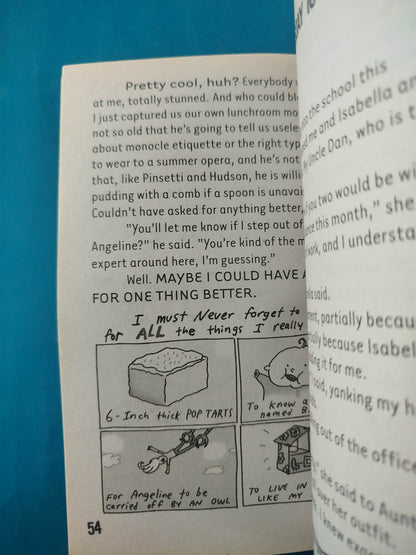 Pretty cool, huh? Everybody
at me, totally stunned. And who could
I just captured us our own lunchroom
not so old that he's going to tell us
about monocle etiquette or the right
to wear to a summer opera, and he's not
that, like Pinsetti and Hudson, he is
pudding with a comb if a spoon is
Couldn't have asked for anything better,
"You'll let me know if I step out of
Angeline?" he said. "You're kind of the
expert around here, I'm guessing."
Well. MAYBE I COULD HAVE
FOR ONE THING BETTER.
I must Never forget to
for ALL the things I really
6-Inch thick POP TARTS
To know a
named
For Angeline to be
carried off BY AN OWL
TO LIVE IN
LIKE MY
54
the school this
me and Isabella
Uncle Dan, who is
you two would be
this month," she
work, and I
said.
partially
because
it for me.
said, yanking my
out of the office
she said to
over her outfit.
I knew